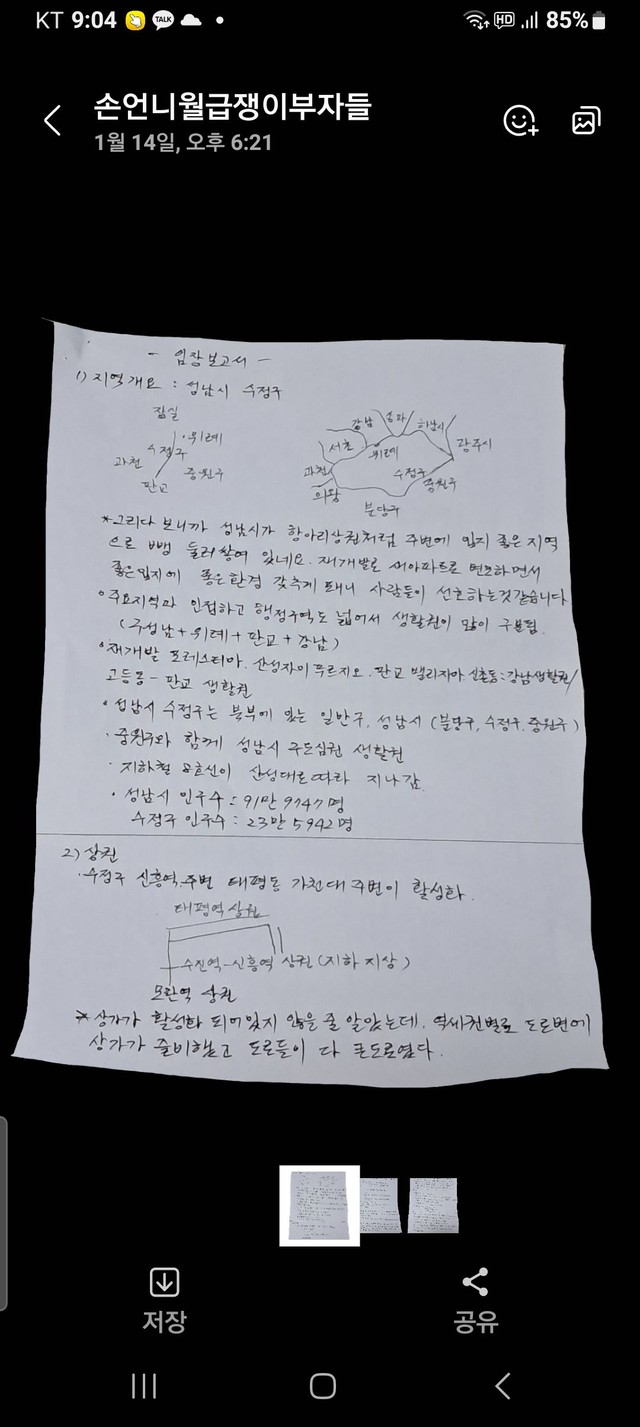 KT 9:04 TALK HD 85%
손언니월급쟁이부자들
1월 14일, 오후 6:21
- 임장보고서 -
1) 지역개요 : 성남시 수정구
잠실
·위례
수정구
과천
중원구
판교
강남 송파 하남시
서초 위례 광주시
과천 수정구
의왕 중원구
분당구
*그러다 보니까 성남시가 항아리상권처럼 주변에 입지 좋은 지역
으로 뺑 둘러쌓여 있네요. 재개발로 새아파트로 변모하면서
좋은입지에 좋은환경 갖추게 돼니 사람들이 선호하는것같습니다
·주요지역과 인접하고 행정구역도 넓어서 생활권이 많이 구분됨
(구성남+위례+판교+강남)
·재개발 포레스티아. 산성자이푸르지오. 판교 밸리자이. 신촌동:강남생활권/
고등동 - 판교 생활권
· 성남시 수정구는 북부에 있는 일반구, 성남시 (분당구, 수정구, 중원구)
· 중원구와 함께 성남시 구도심권 생활권
· 지하철 8호선이 산성대로따라 지나감
· 성남시 인구수 : 91만 9747명
수정구 인구수 : 23만 5942명
2) 상권
·수정구 신흥역.주변 태평동 가천대 주변이 활성화.
태평역 상권
수진역-신흥역 상권 (지하 지상)
모란역 상권
* 상가가 활성화 되어있지 않을 줄 알았는데. 역세권별로 도로변에
상가가 즐비했고 도로들이 다 포도로였다.
저장 공유